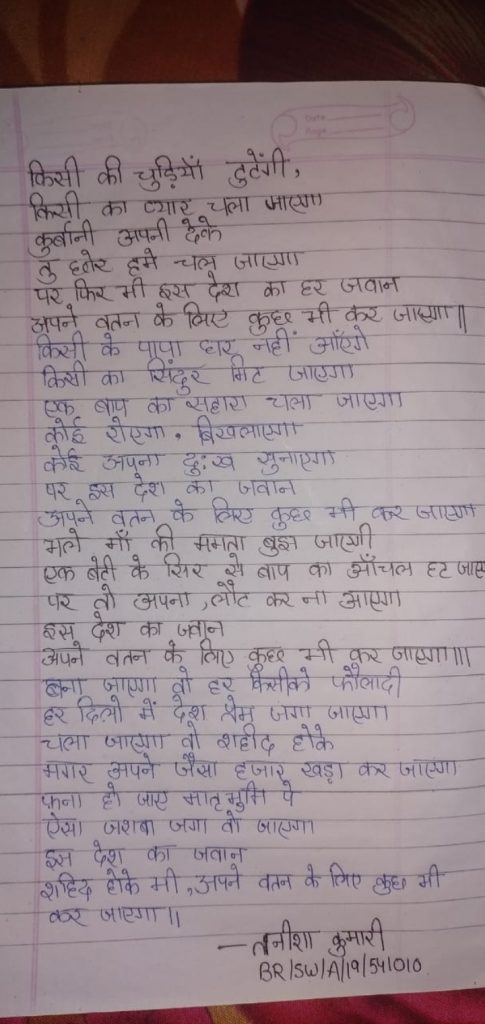 Date
Page
किसी की चुड़ियाँ टुटेंगी,
किसी का प्यार चला जाएगा
कुर्बानी अपनी देके
तु छोर हमे चला जाएगा
पर फिर भी इस देश का हर जवान
अपने वतन के लिए कुछ भी कर जाएगा॥
किसी के पापा घर नहीं आएँगे
किसी का सिंदुर मिट जाएगा
एक बाप का सहारा चला जाएगा
कोई रोएगा, बिखलाएगा
कोई अपना दुःख सुनाएगा
पर इस देश का जवान
अपने वतन के लिए कुछ भी कर जाएगा
भले माँ की ममता बुझ जाएगी
एक बेटी के सिर से बाप का आँचल हट जाए
पर वो अपना, लौट कर ना आएगा
इस देश का जवान
अपने वतन के लिए कुछ भी कर जाएगा॥।
बना जाएगा वो हर किसीको फौलादी
हर दिलो में देश प्रेम जगा जाएगा
चला जाएगा वो शहीद होके
मगर अपने जैसा हजार खड़ा कर जाएगा
फ़ना हो जाए मातृभुमि पे
ऐसा जशबा जगा वो जाएगा
इस देश का जवान
शहिद होके भी, अपने वतन के लिए कुछ भी
कर जाएगा॥
— तनीशा कुमारी
BR/SW/A/19/541010